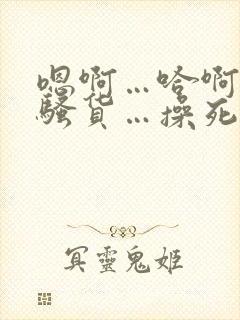 嗯啊…哈啊
骚货…操死
冥靈鬼姬